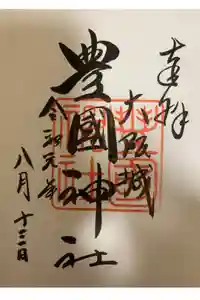 奉拝
大阪城
豊國神社
令和元年
八月十三日